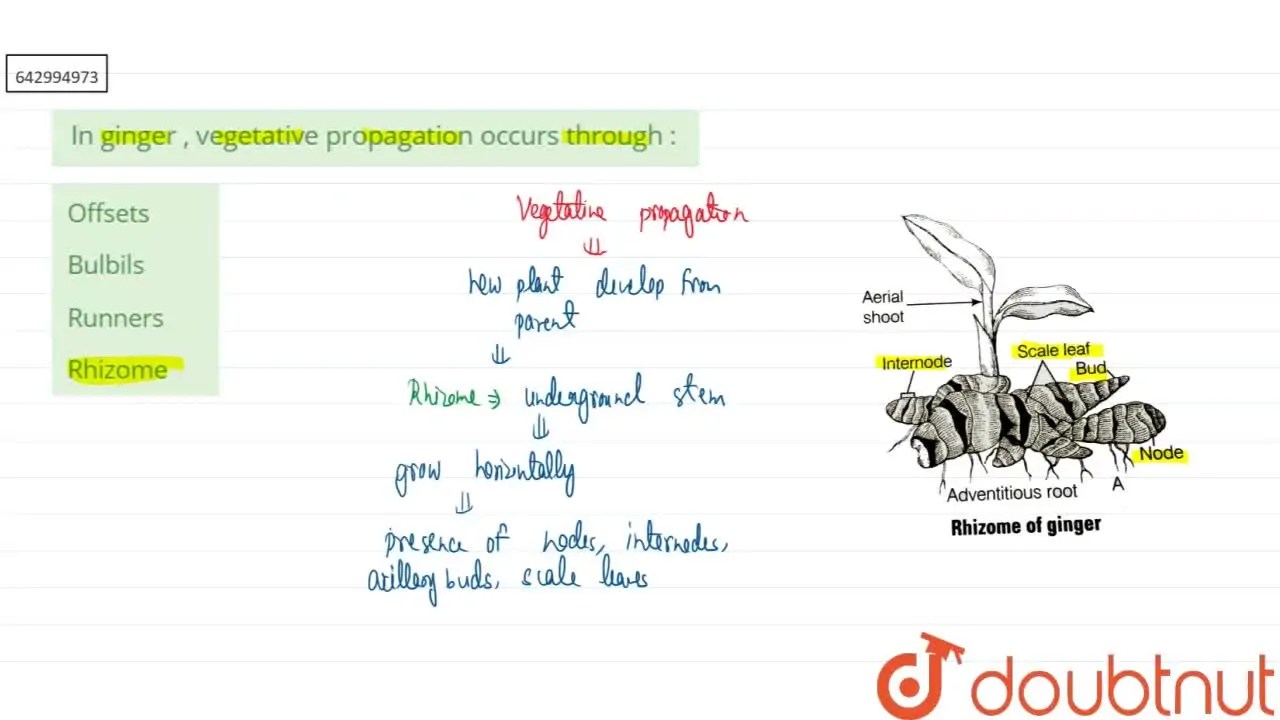 642994973
In ginger , vegetative propagation occurs through :
Offsets
Bulbils
Runners
Rhizome
Vegetative propagation
⇓
new plant develop from
parent
⇓
Rhizome ⇒ underground stem
⇓
grow horizontally
⇓
presence of nodes, internodes,
axillary buds, scale leaves
Aerial
shoot
Internode
Scale leaf
Bud
Node
Adventitious root
A
Rhizome of ginger
doubtnut